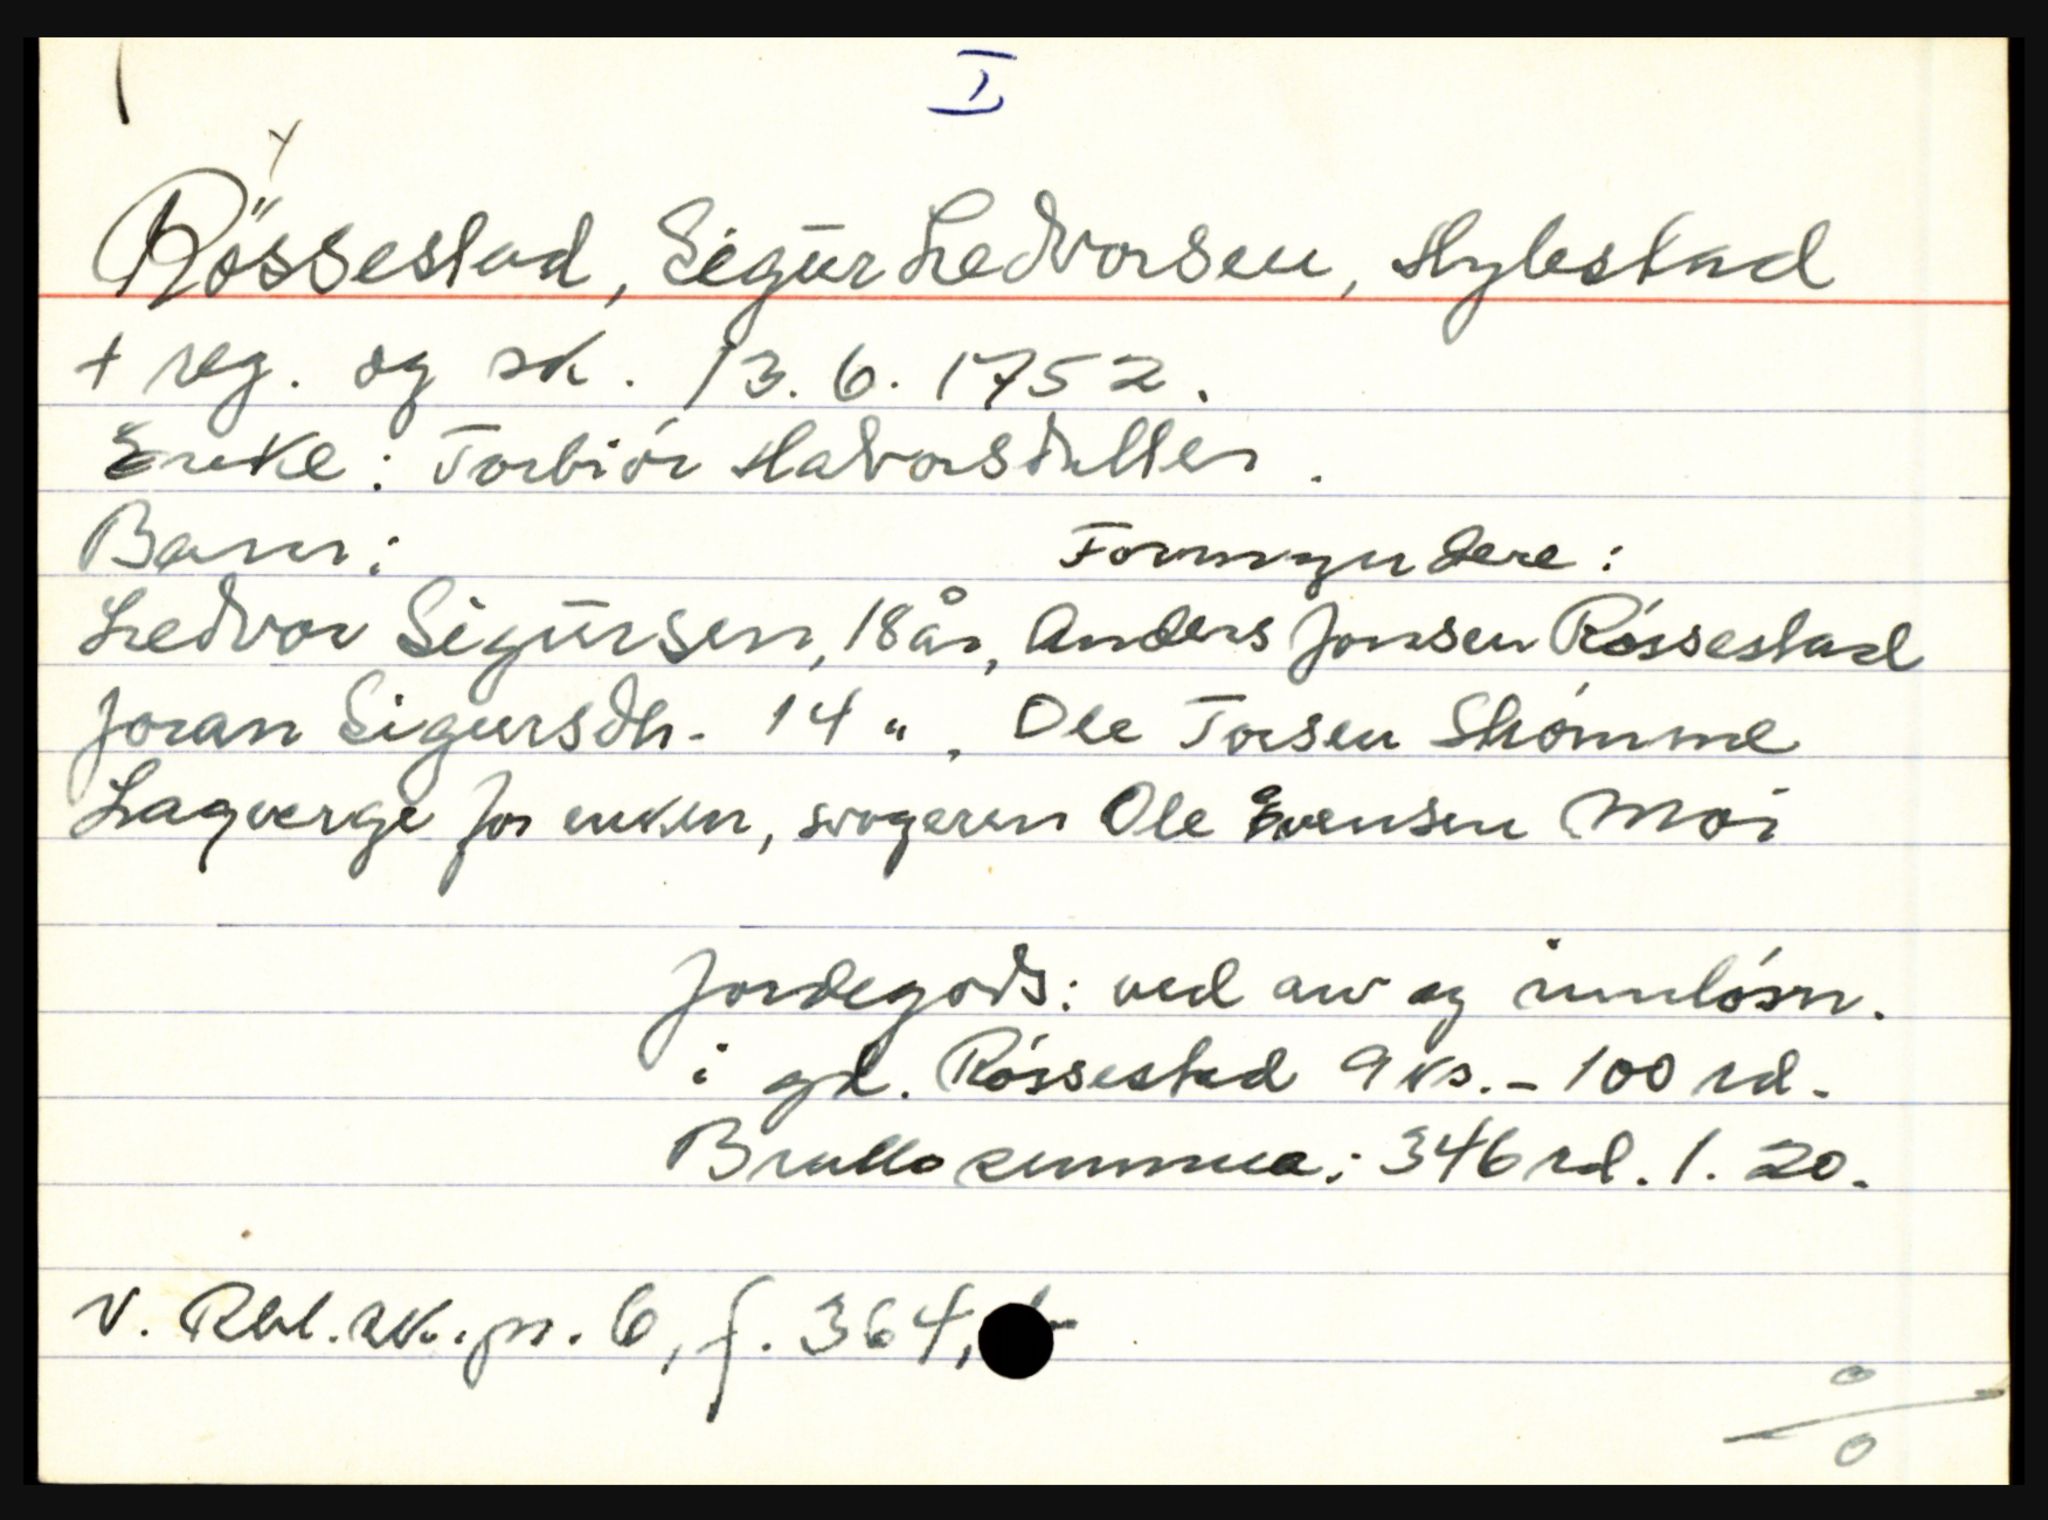 I
Røssestad, Sigūr Ledvorsen, Hylestad
+ reg. og sk. 13. 6. 1752.
Enke: Torbiór Halvorsdatter.
Barn: Formyndere:
Ledvor Sigūrsen, 18 år, Anders Jonsen Róssestad
Joran Sigursdtr. 14 ", Ole Torsen Strómme
Lagverge for enken, svogeren Ole Evensen Moi
Jordegods: ved arv og innlósn.
i gd. Róssestad 9 ks. - 100 rd.
Brutto summa: 346 rd. 1. 20.
v. Rbl. sk. pr. 6, f. 364,